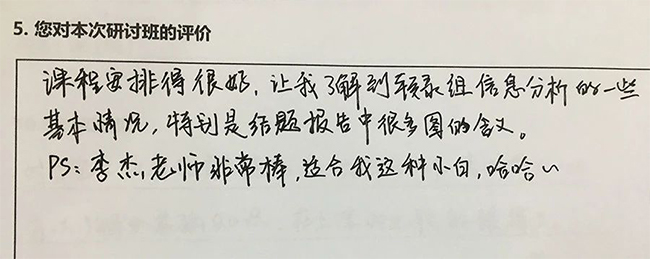 5. 您对本次研讨班的评价
课程安排得很好，让我了解到转录组信息分析的一些
基本情况，特别是结题报告中很多图的含义。
PS：李杰老师非常棒，适合我这种小白，哈哈~